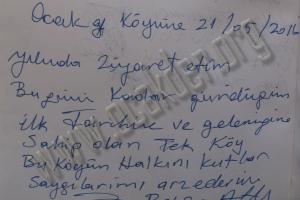 Ocak g Köyüne 21/05/2016
yılında Ziyaret ettim
Bugüne Kadar gördüğüm
ilk Tarihine ve geleneğine
Sahip olan Tek Köy
Bu Köyün Halkını kutlar
Saygılarımı arzederim